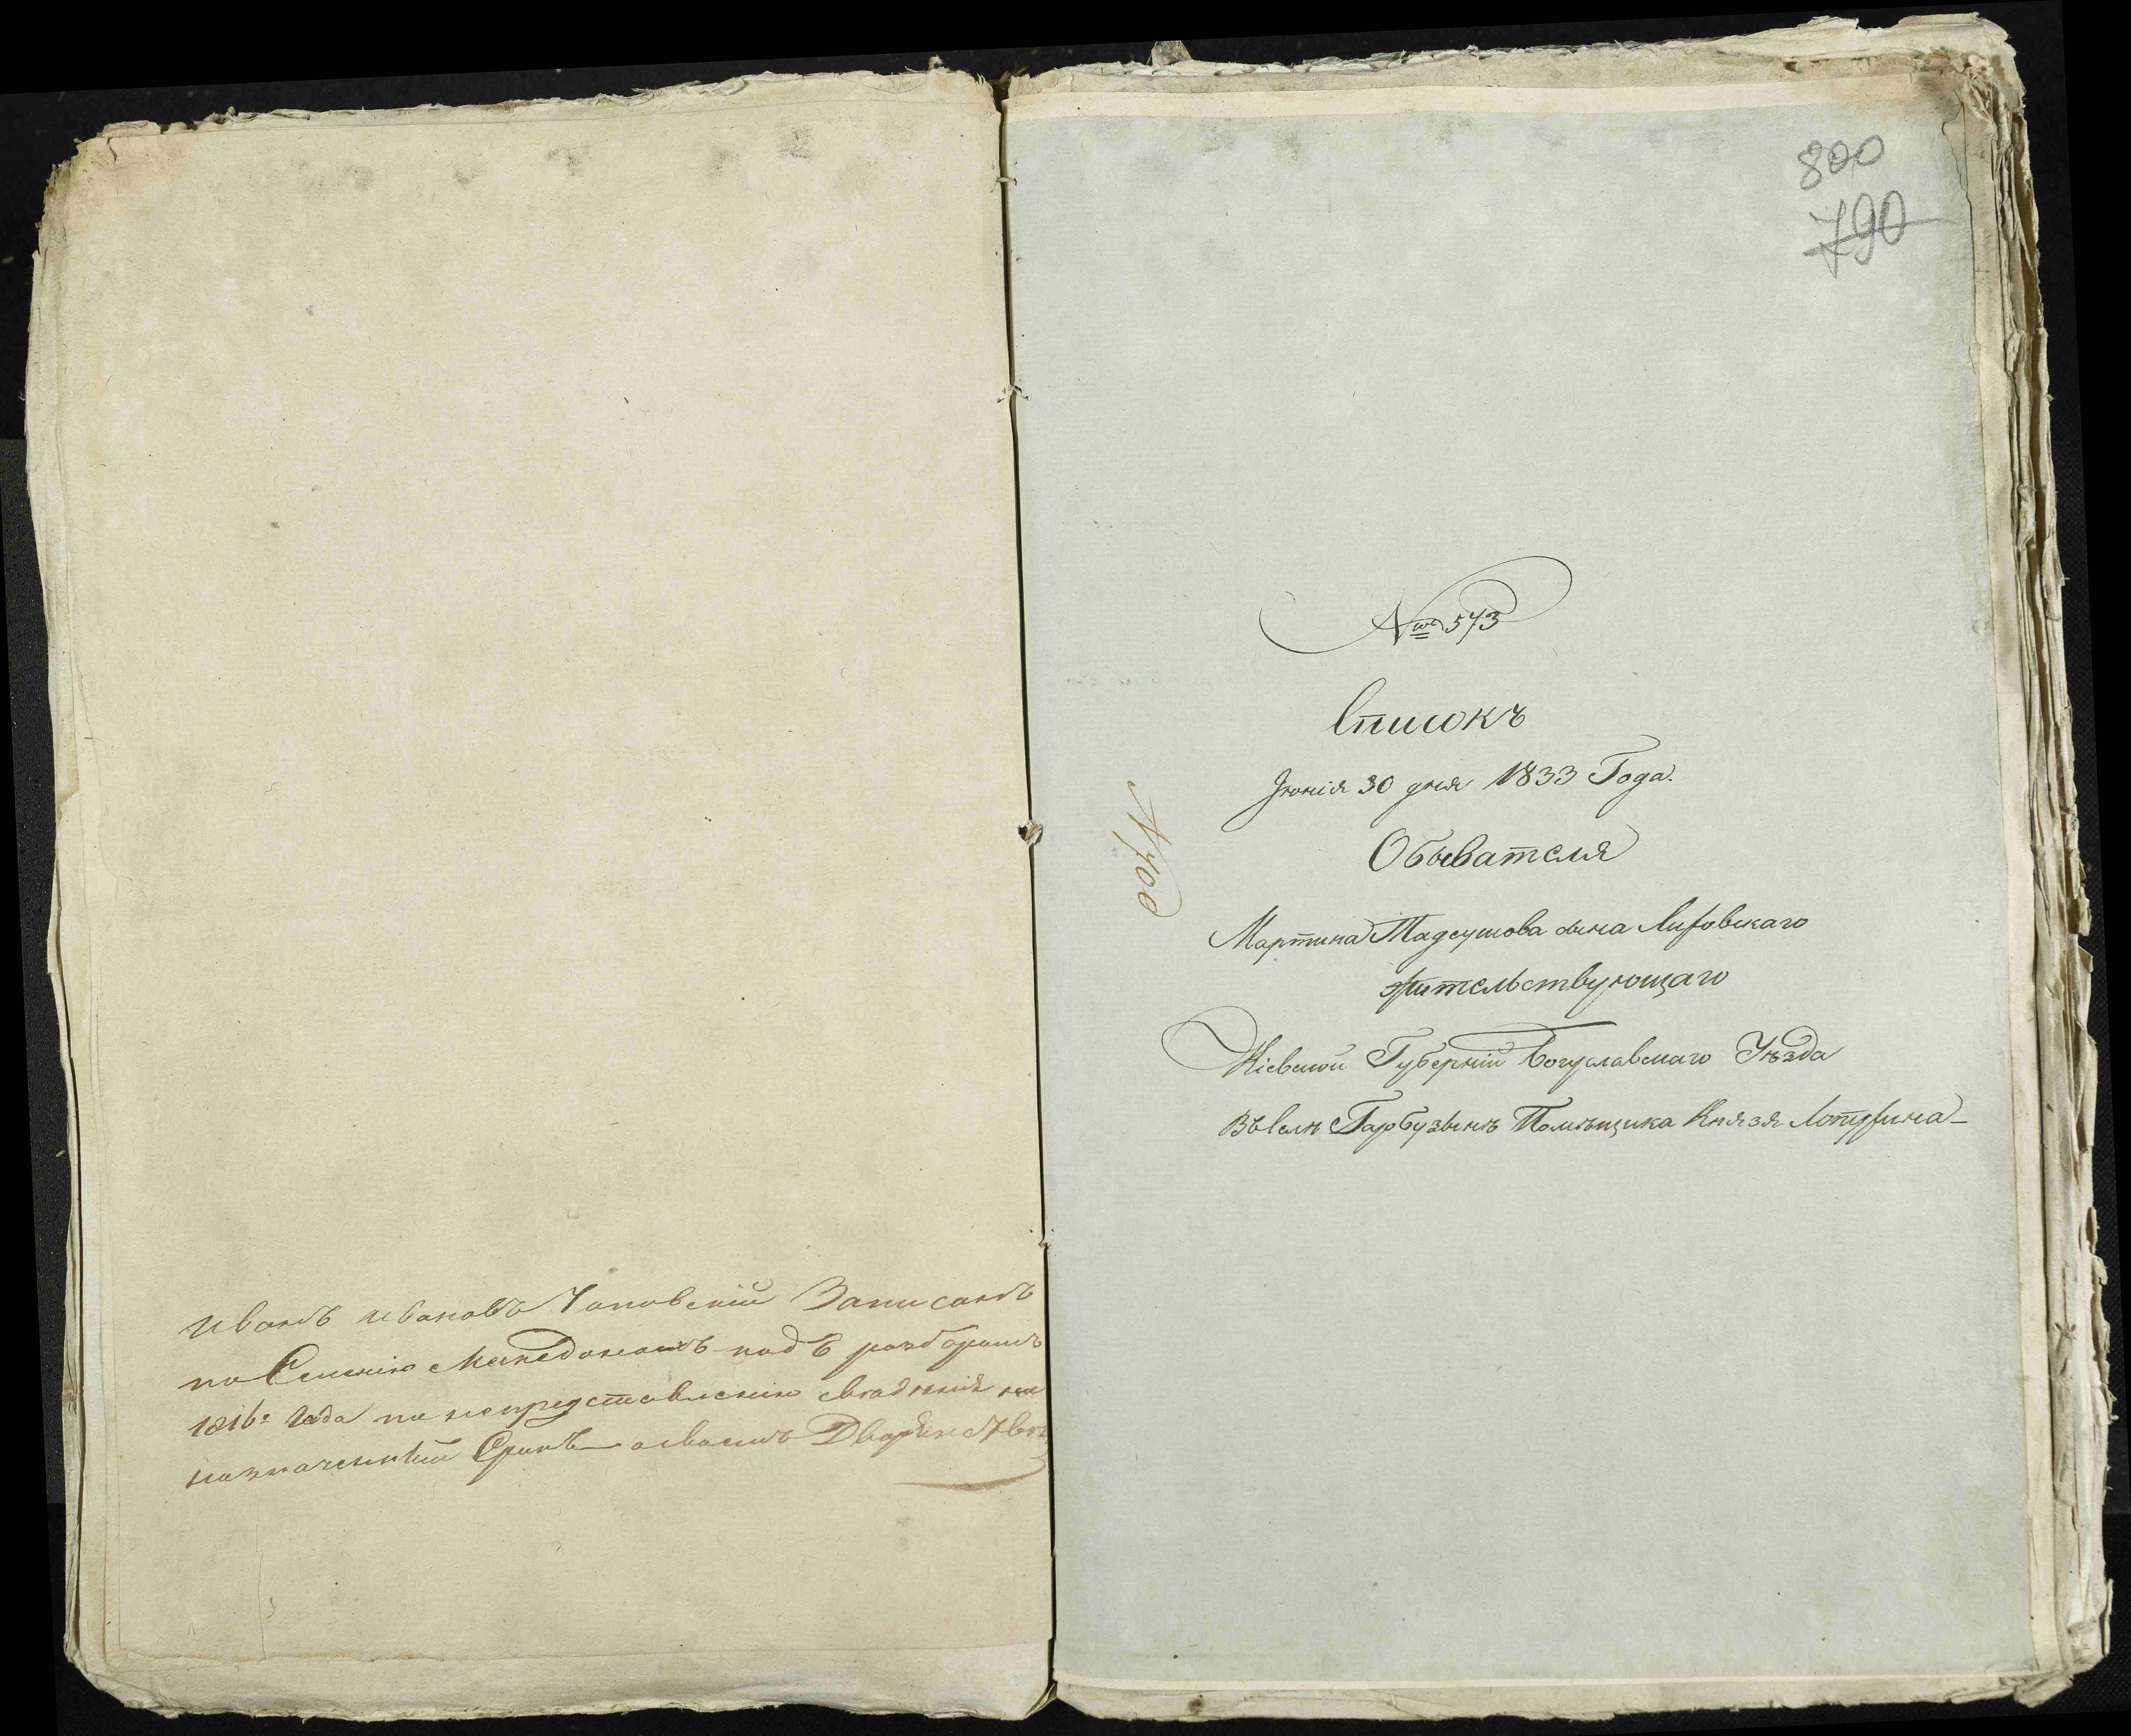 Иванъ Ивановъ Чаповскій Записанъ
по Селенію Македонахъ подъ разборомъ
1816го Года по непредставленію сведенія на
назначенный Срокъ о своемъ Дворянствѣ
800
790
№ 573
Списокъ
Іюнія 30 дня 1833 Года.
Обывателя
Мартина Тадеушова сына Лировскаго
жительствующаго
Кіевской Губерніи Богуславскаго Уѣзда
въ Селѣ Гарбузынѣ Помѣщика Князя Лопухина